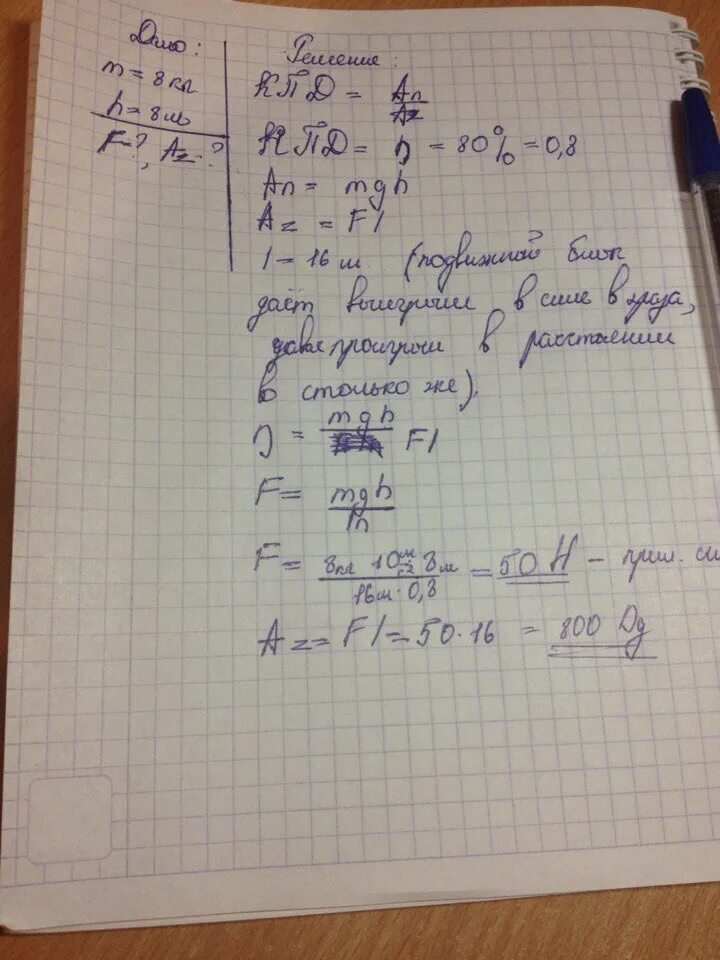 Дано:
m = 8 кг
h = 8 м
F-?, Aз-?
Решение:
КПД = Aп/Aз
КПД = η = 80% = 0,8
Aп = mgh
Aз = Fl
l = 16 м (подвижной блок
даёт выигрыш в силе в 2 раза,
давая проигрыш в расстоянии
во столько же).
η = mgh/Fl
F = mgh/lη
F = 8кг 10 м/с2 8м/16м·0,8 = 50 Н – прил.
Aз = Fl = 50·16 = 800 Дж